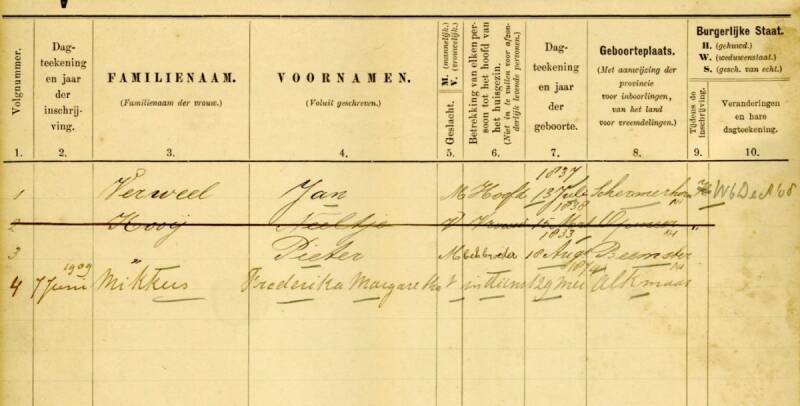 Volgnummer.
Dag-
teekening
en jaar
der
inschrij-
ving.
FAMILIENAAM.
(Familienaam der vrouw.)
VOORNAMEN.
(Voluit geschreven.)
Geslacht.
M. (mannelijk.)
V. (vrouwelijk.)
Betrekking van elken per-
soon tot het hoofd van
het huisgezin.
(Niet in te vullen voor afzon-
derlijk levende personen.)
Dag-
teekening
en jaar
der
geboorte.
Geboorteplaats.
(Met aanwijzing der
provincie
voor inboorlingen,
van het land
voor vreemdelingen.)
Burgerlijke Staat.
H. (gehuwd.)
W. (weduwenstaat.)
S. (gesch. van echt.)
Tijdens de
inschrijving.
Veranderingen
en hare
dagteekening.
1. 2. 3. 4. 5. 6. 7. 8. 9. 10.
1 Verweel Jan M Hoofd 1837 13 Juli Schermerhorn NH H W 6 Dec '08
2 Kooij Neeltje V Vrouw 1838 15 Mrt Opmeer NH "
3 " Pieter M 1833 18 Aug Beemster NH
4 1909 7 Juni Mikkers Frederika Margaretha V in dienst 1874 29 Mei Alkmaar